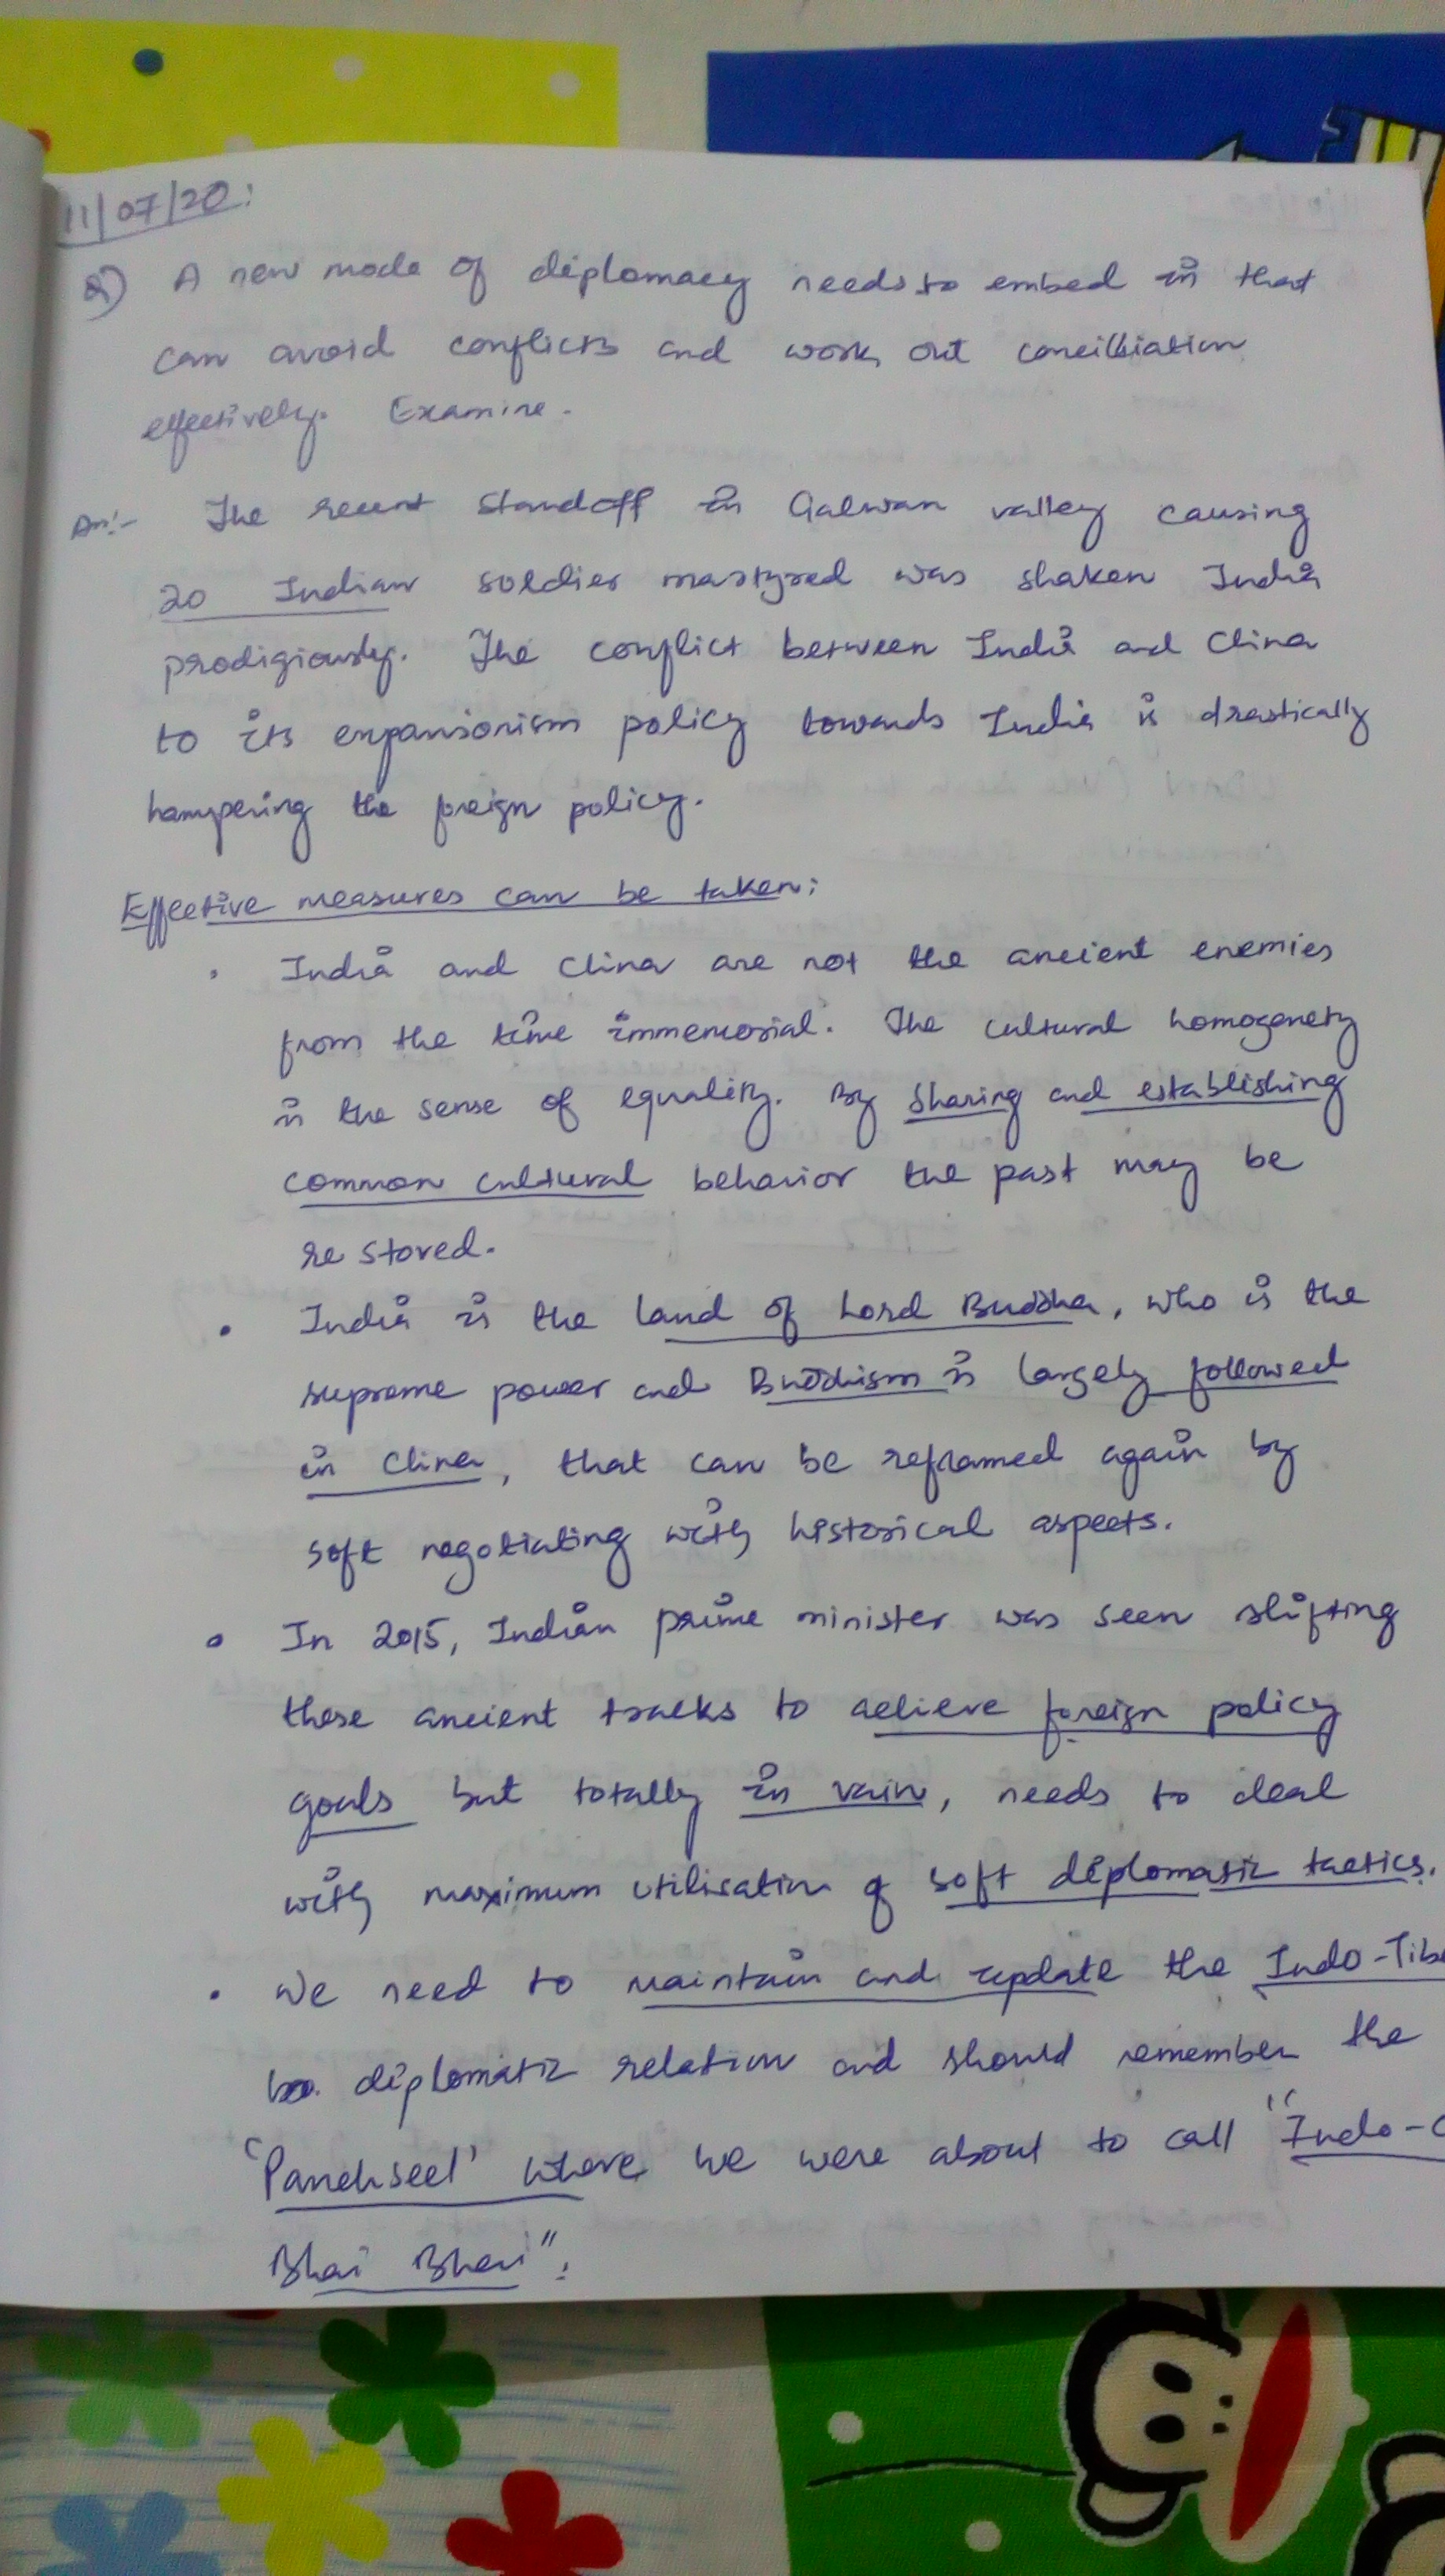 11/07/20:
Q) A new mode of diplomacy needs to embed in that
can avoid conflicts and work out conciliation
effectively. Examine.
An:- The recent standoff in Galwan valley causing
20 Indian soldier martyred was shaken India
prodigiously. The conflict between India and China
to its expansionism policy towards India is drastically
hampering the foreign policy.
Effective measures can be taken:
• India and China are not the ancient enemies
from the time immemorial. The cultural homogenety
is the sense of equality. By sharing and establishing
common cultural behavior the past may be
restored.
• India is the land of Lord Buddha, who is the
supreme power and Buddhism is largely followed
in China, that can be reframed again by
soft negotiating with historical aspects.
• In 2015, Indian prime minister was seen shifting
these ancient tracks to achieve foreign policy
goals but totally in vain, needs to deal
with maximum utilisation of soft diplomatic tactics.
• We need to maintain and update the Indo-Tibe
diplomatic relation and should remember the
'Panchseel' where we were about to call "Indo-C
Bhai Bhai".